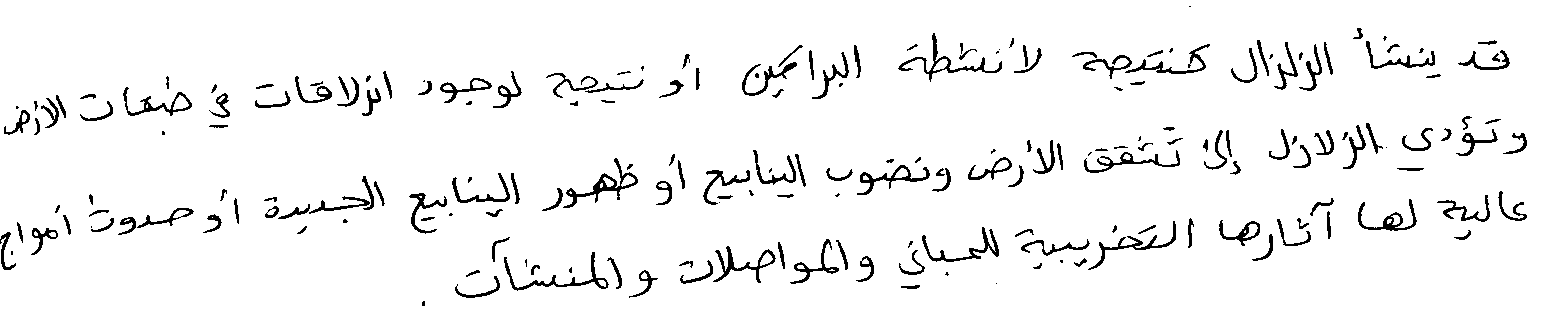 قد ينشأ الزلزال كنتيجة لأنشطة البراكين أو نتيجة لوجود انزلاقات في طبقات الأرض
وتؤدي الزلازل إلى تشقق الأرض ونضوب الينابيع أو ظهور الينابيع الجديدة أو حدوث أمواج
عالية لها آثارها التخريبية للمباني والمواصلات والمنشآت .